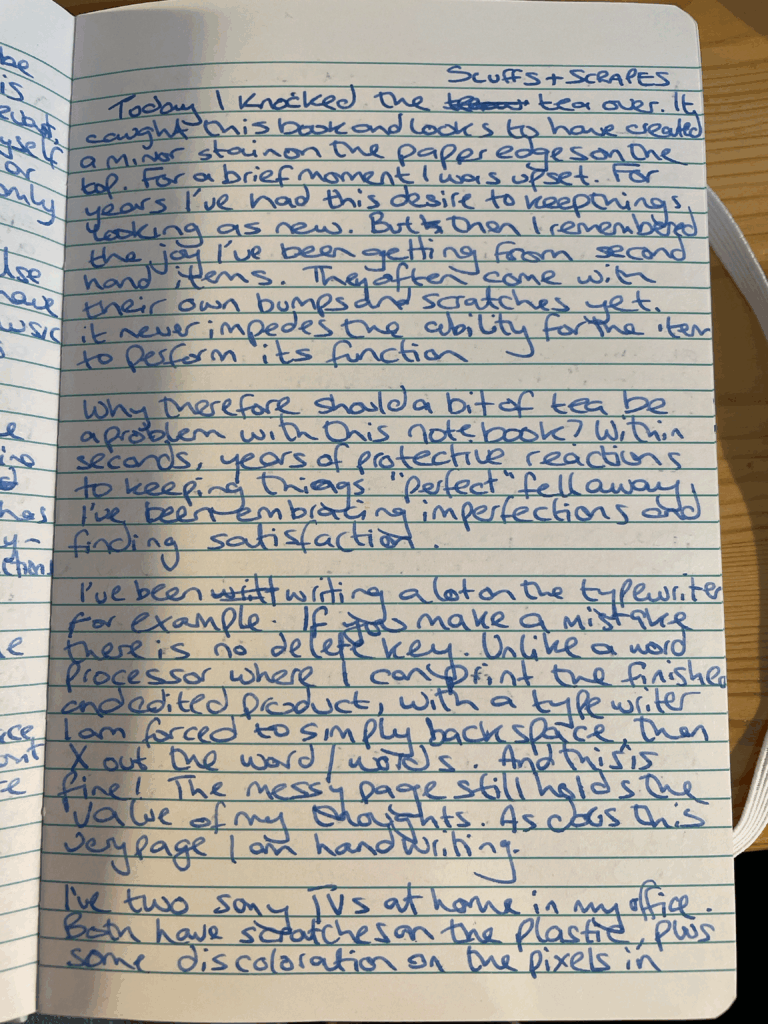 be
is
yself
or
only
lse
have
music
e
has
y-
e
SCUFFS + SCRAPES
Today I knocked the tea over. It
caught this book and looks to have created
a minor stain on the paper edges on the
top. For a brief moment I was upset. For
years I've had this desire to keep things
looking as new. But then I remembered
the joy I've been getting from second
hand items. They often come with
their own bumps and scratches yet.
it never impedes the ability for the item
to perform its function
Why therefore should a bit of tea be
a problem with this notebook? Within
seconds, years of protective reactions
to keeping things "perfect" fell away,
I've been embracing imperfections and
finding satisfaction.
I've been writing a lot on the typewriter
for example. If you make a mistake
there is no delete key. Unlike a word
processor where I can print the finished
and edited product, with a typewriter
I am forced to simply backspace, then
X out the word/words. And this is
fine! The messy page still holds the
value of my thoughts. As does this
very page I am handwriting.
I've two sony TVs at home in my office.
Both have scratches on the plastic, plus
some discoloration on the pixels in